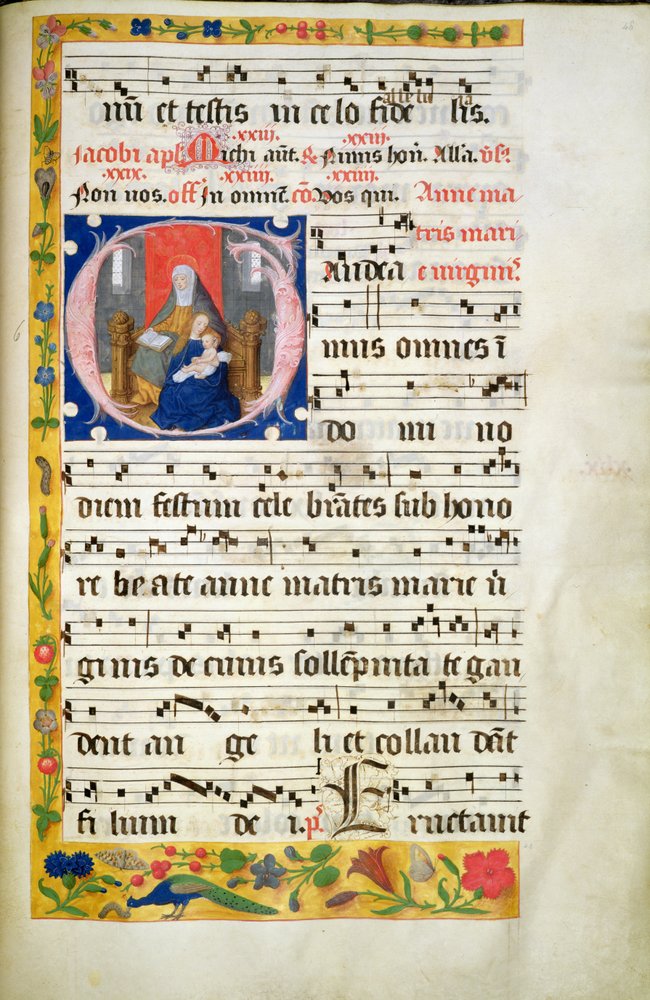 48
alle lu ia
nū et testis in ce lo fide lis.
.xxiii. .xxiii.
Jacobi apl̄i Michi aūt. & Nimis hon̄. All'a. v̄s.
.xxix. .xxiiii. .xxiiii.
Non vos. off In omnē. cō. Vos qui. Anne ma
tris mari
Audea e virgin̄.
mus omnes ī
do mi no
diem festum cele brātes sub hono
re be ate anne matris marie v̄i
ginis de cuius sollēpnita te gau
dent an ge li et collau dāt
fi lium de i. p̄s. E ructauit
6